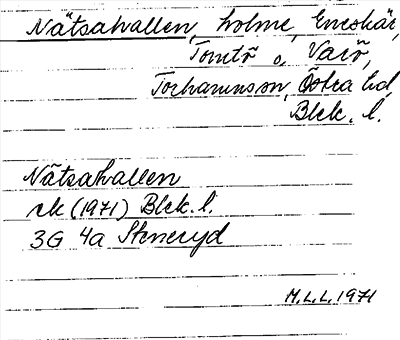 Nätsahallen, holme, Eneskär,
Tomtö o. Varö,
Torhamns sn, Östra hd,
Blek. l.
Nätsahallen
ek (1971) Blek. l.
3G 4a Steneryd
M.L.L. 1971